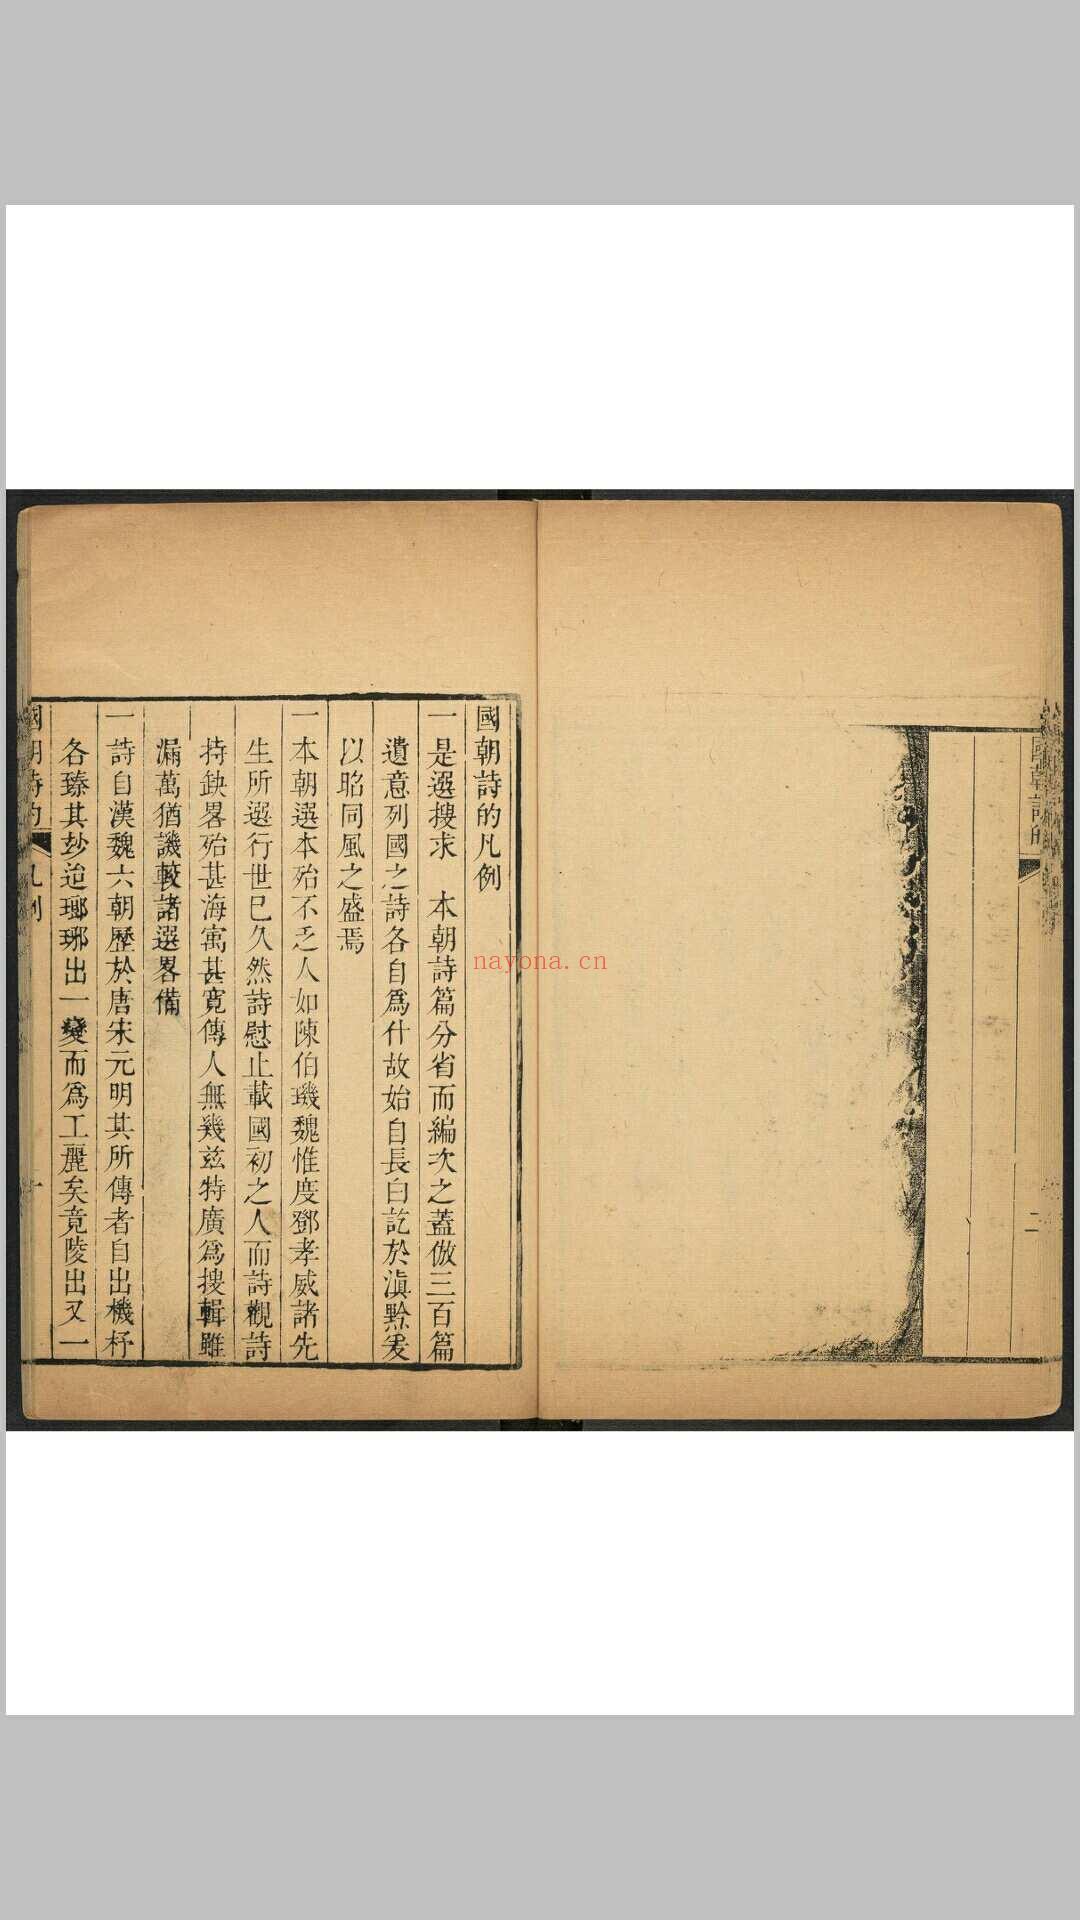 國朝詩的
二
國朝詩的凡例
一是選搜求　本朝詩篇分省而編次之蓋倣三百篇
遺意列國之詩各自爲什故始自長白訖於滇黔爰
以昭同風之盛焉
一本朝選本殆不乏人如陳伯璣魏惟度鄧孝威諸先
生所選行世已久然詩慰止載國初之人而詩觀詩
持缺畧殆甚海寓甚寛傳人無幾茲特廣爲搜輯雖
漏萬猶譏較諸選畧備
一詩自漢魏六朝歷於唐宋元明其所傳者自出機杼
各臻其玅迨瑯琊出一變而爲工麗矣竟陵出又一
國朝詩的
凡例
一
nayona.cn